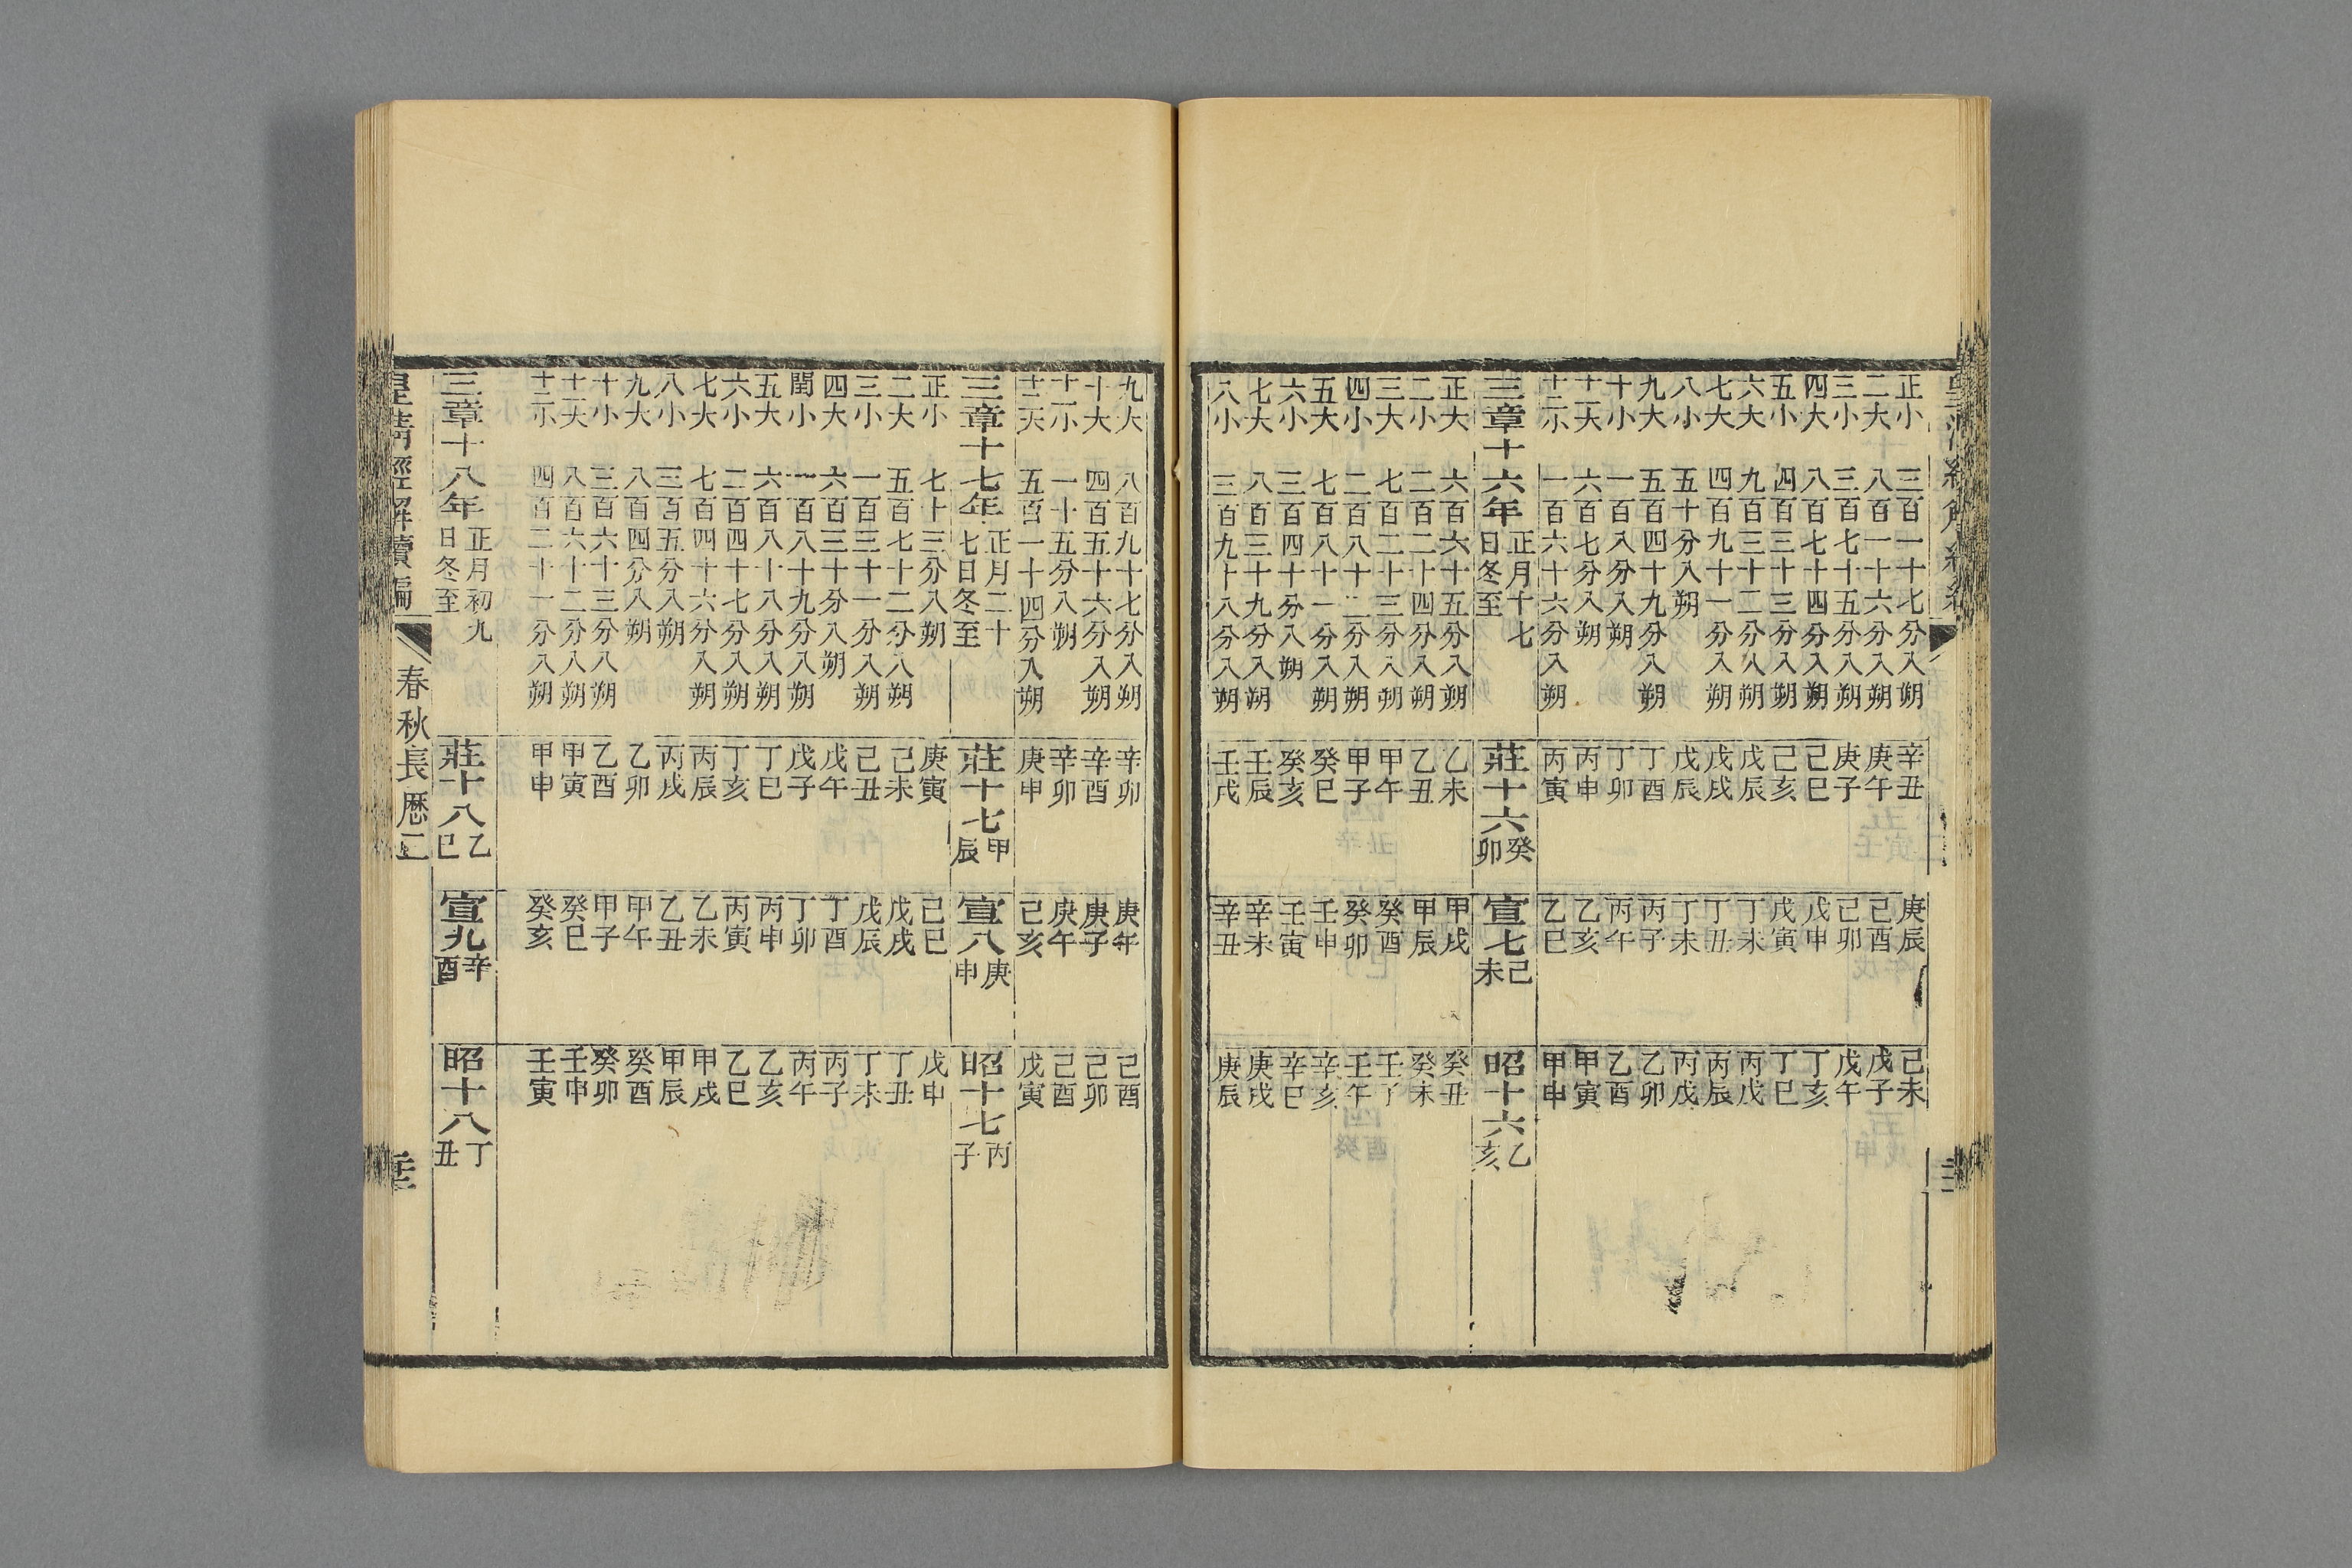 正小 三百一十七分入朔 辛丑 庚辰 己未
二大 八百一十六分入朔 庚午 己酉 戊子
三小 三百七十五分入朔 庚子 己卯 戊午
四大 八百七十四分入朔 己巳 戊申 丁亥
五小 四百三十三分入朔 己亥 戊寅 丁巳
六大 九百三十二分入朔 戊辰 丁未 丙戌
七大 四百九十一分入朔 戊戌 丁丑 丙辰
八小 五十分入朔 戊辰 丁未 丙戌
九大 五百四十九分入朔 丁酉 丙子 乙卯
十小 一百八分入朔 丁卯 丙午 乙酉
十一大 六百七分入朔 丙申 乙亥 甲寅
十二小 一百六十六分入朔 丙寅 乙巳 甲申
三章十六年 正月十七日冬至 莊十六 癸卯 宣七 己未 昭十六 乙亥
正大 六百六十五分入朔 乙未 甲戌 癸丑
二小 二百二十四分入朔 乙丑 甲辰 癸未
三大 七百二十三分入朔 甲午 癸酉 壬子
四小 二百八十二分入朔 甲子 癸卯 壬午
五大 七百八十一分入朔 癸巳 壬申 辛亥
六小 三百四十分入朔 癸亥 壬寅 辛巳
七大 八百三十九分入朔 壬辰 辛未 庚戌
八小 三百九十八分入朔 壬戌 辛丑 庚辰
九大 八百九十七分入朔 辛卯 庚午 己酉
十大 四百五十六分入朔 辛酉 庚子 己卯
十一小 一十五分入朔 辛卯 庚午 己酉
十二大 五百一十四分入朔 庚申 己亥 戊寅
三章十七年 正月二十七日冬至 莊十七 甲辰 宣八 庚申 昭十七 丙子
正小 七十三分入朔 庚寅 己巳 戊申
二大 五百七十二分入朔 己未 戊戌 丁丑
三小 一百三十一分入朔 己丑 戊辰 丁未
四大 六百三十分入朔 戊午 丁酉 丙子
閏小 一百八十九分入朔 戊子 丁卯 丙午
五大 六百八十八分入朔 丁巳 丙申 乙亥
六小 二百四十七分入朔 丁亥 丙寅 乙巳
七大 七百四十六分入朔 丙辰 乙未 甲戌
八小 三百五分入朔 丙戌 乙丑 甲辰
九大 八百四分入朔 乙卯 甲午 癸酉
十小 三百六十三分入朔 乙酉 甲子 癸卯
十一大 八百六十二分入朔 甲寅 癸巳 壬申
十二小 四百二十一分入朔 甲申 癸亥 壬寅
三章十八年 正月初九日冬至 莊十八 乙巳 宣九 辛酉 昭十八 丁丑
皇清經解續編 春秋長厯二